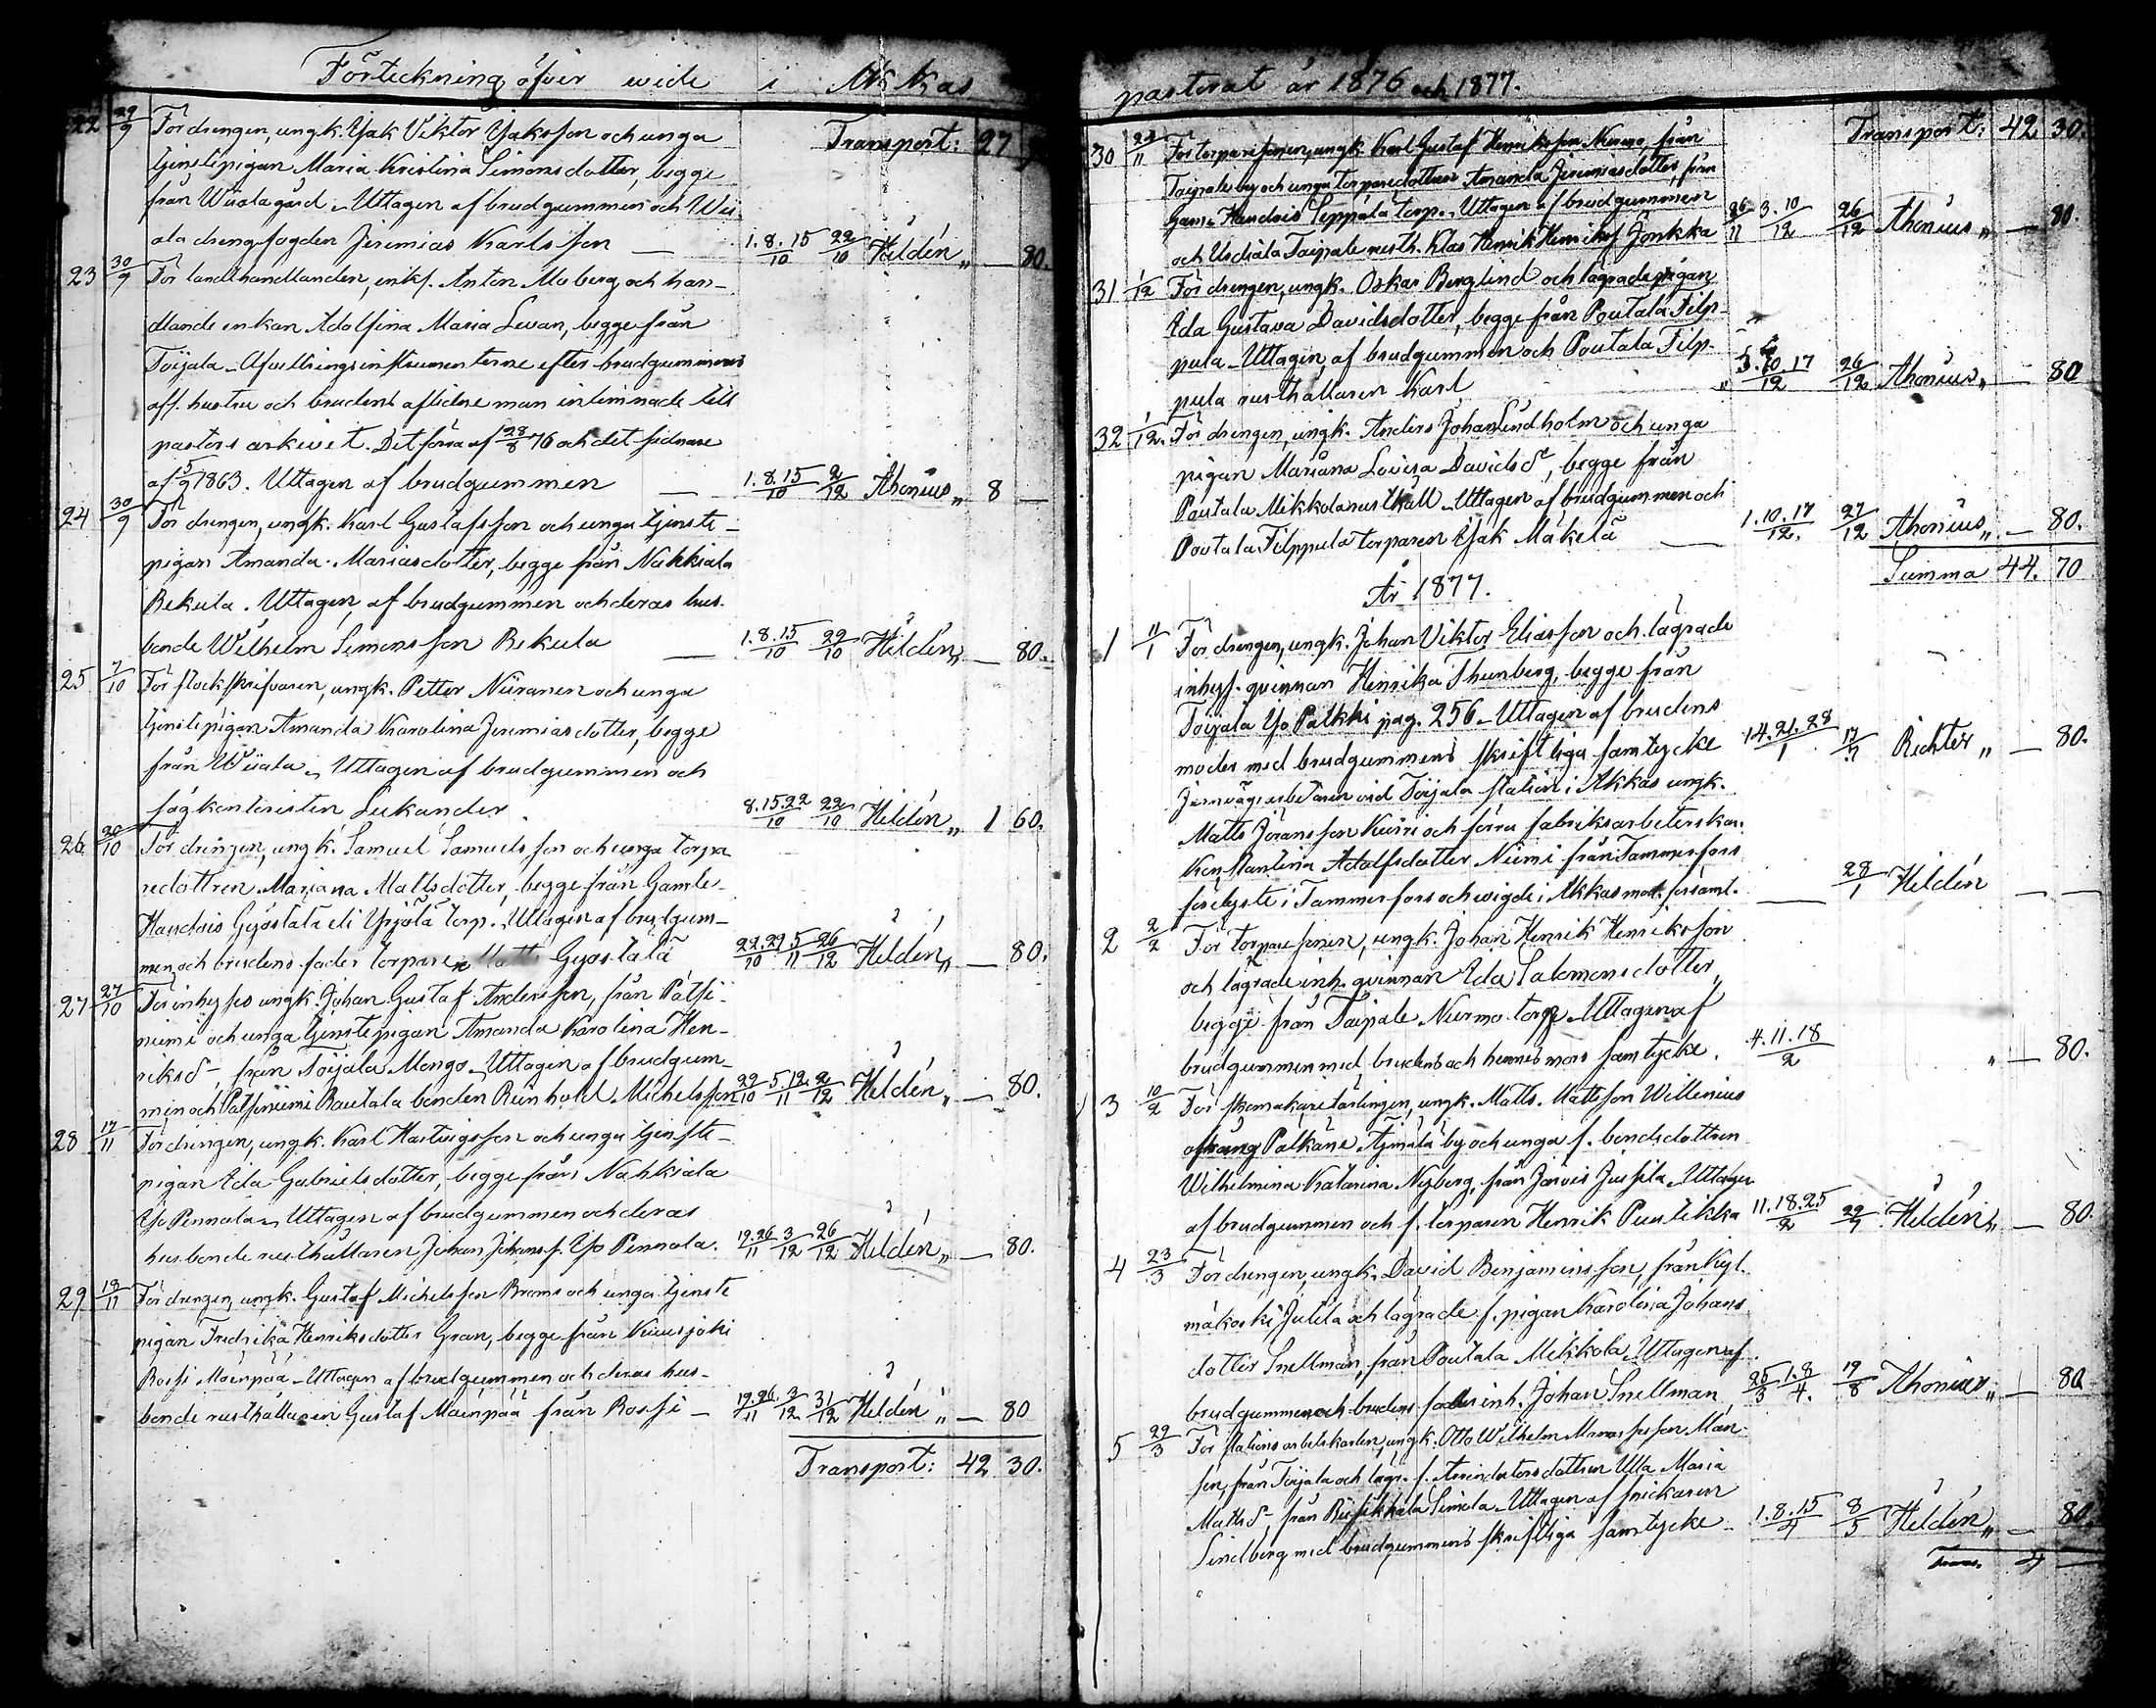 Förteckning öfver wide i Akkas
Transport: 27
22 29/9 För drengen, ungk. Isak Viktor Isaksson och unga
tjenstepigan Maria Kristina Simonsdotter, begge
från Wiiala gård. Uttagen af brudgummen och Wii-
ala drengfogden Jeremias Karlsson — 1.8.15/10 22/10 Heldén „ — 80.
23 30/9 För landthandlanden, enkl. Anton Moberg och han-
dlande enkan Adolfina Maria Levan, begge från
Toijala. Afvittringsinstrumenterne efter brudgummens
afl. hustru och brudens aflidne man inlemnade till
pastors arkivet. Det förra af 28/8 76 och det sednare
af 5/9 1863. Uttagen af brudgummen — 1.8.15/10 2/12 Ahonius „ 8 —
24 30/9 För drengen, ungk. Karl Gustafsson och unga tjenste-
pigan Amanda Mariasdotter, begge från Nahkiala
Rekula. Uttagen af brudgummen och deras hus-
bonde Wilhelm Simonsson Rekula — 1.8.15/10 29/10 Heldén „ — 80.
25 7/10 För stockskrifvaren, ungk. Petter Niiranen och unga
tjenstepigan Amanda Karolina Jeremiasdotter, begge
från Wiiala. Uttagen af brudgummen och
sågkontoristen Lukander. 8.15.22/10 22/10 Heldén „ 1 60.
26. 20/10 För drengen, ungk. Samuel Samuelsson och unga torpa
redottren Mariana Mattsdotter, begge från Gamle-
Handois Gyöstälä eli Yrjölä torp. Uttagen af brudgum-
men och brudens fader torparen Matts Gyöstälä 22.29/10 5/11 26/12 Heldén „ — 80.
27 27/10 För inhyses ungk. Johan Gustaf Andersson, från Pätsi-
niemi och unga tjenstepigan Amanda Karolina Hen-
riksd—, från Toijala Mongo. Uttagen af brudgum-
men och Pätsiniemi Rautala bonden Reinhold Michelsson 29/10 5.12/11 2/12 Heldén „ — 80.
28 17/11 För drengen, ungk. Karl Hartvigsson och unga tjenste-
pigan Ida Gabrielsdotter, begge från Nahkiala
Yo Pennala. Uttagen af brudgummen och deras
husbonde rusthållaren Johan Johanss. Yo Pennala. 19.26/11 3/12 26/12 Heldén „ — 80.
29 18/11 För drengen, ungk. Gustaf Michelsson Broms och unga tjenste
pigan Fredrika Henriksdotter Gran, begge från Kuurisjoki
Rossi Mäenpää. Uttagen af brudgummen och deras hus-
bonde rusthållaren Gustaf Mäenpää från Rossi — 19.26/11 3/12 31/12 Heldén „ — 80
Transport: 42 30.
pastorat år 1876 och 1877.
Transport: 42 30.
30 23/11 För torparesonen, ungk. Karl Gustaf Henriksson Nurmo, från
Taipale by och unga torparedottren Amanda Jeremiasdotter, från
Gam. Handois Seppälä torp. Uttagen af brudgummen
och Uschala Taipale rusth. Klas Henrik Henriks. Jonkka 26/11 3.10/12 26/12 Ahonius „ — 80.
31 1/12 För drengen, ungk. Oskar Berglind och lägrade pigan
Ida Gustava Davidsdotter, begge från Poutala Filp-
pula. Uttagen af brudgummen och Poutala Filp-
pula rusthållaren Karl 3.10.17/12 26/12 Ahonius „ — 80
32 1/12. För drengen, ungk. Anders Johan Lindholm och unga
pigan Mariana Lovisa Davidsdr, begge från
Poutala Mikkola rusthåll. Uttagen af brudgummen och
Poutala Filppula torparen Isak Mäkelä — 1.10.17/12. 27/12 Ahonius „ — 80.
Summa 44. 70
År 1877.
1 11/1 För drengen, ungk. Johan Viktor Eliasson och lägrade
inhys. qvinnan Henrika Thunberg, begge från
Toijala Yo Palkki pag. 256. Uttagen af brudens
moder med brudgummens skriftliga samtycke 14.21.28/1 17/7 Richter „ — 80.
Jernvägsarbetaren vid Toijala station i Akkas ungk.
Matts Jöransson Kuirri och förra fabriksarbeterskan
Konstantina Adolfsdotter Niemi från Tammerfors
förelyste i Tammerfors och vigde i Akkas mod. församl. — 28/1 Heldén — —
2 2/2 För torparesonen, ungk. Johan Henrik Henriksson
och lägrade inh. qvinnan Ida Salomonsdotter,
begge från Taipale Nurmo torp. Uttagen af
brudgummen med brudens och hennes mors samtycke. 4.11.18/2 „ — 80.
3 10/2 För skomakarelärlingen, ungk. Matts Mattsson Willenius
från Pälkäne Äimälä by och unga f. bondedottren
Wilhelmina Katarina Nyberg, från Jarvis Jussila. Uttagen
af brudgummen och f. torparen Henrik Puntikka 11.18.25/2 29/7 Heldén „ — 80.
4 23/3 För drengen, ungk. David Benjaminsson, från Kyl-
mäkoski Jutila och lägrade f. pigan Karolina Johans
dotter Snellman, från Poutala Mikkola. Uttagen af
brudgummen och brudens fader inh. Johan Snellman 25/3 1.8/4. 19/8 Ahonius „ — 80
5 29/3 För stationsarbetskarlen, ungk. Otto Wilhelm Manassesson Man-
sen, från Toijala och lägr. f. Arrendatorsdottren Ulla Maria
Mattsd—, från Riisikkala Simola. Uttagen af snickaren
Lindberg med brudgummens skriftliga samtycke — 1.8.15/4 8/5 Heldén „ — 80.
Trans. 4 —